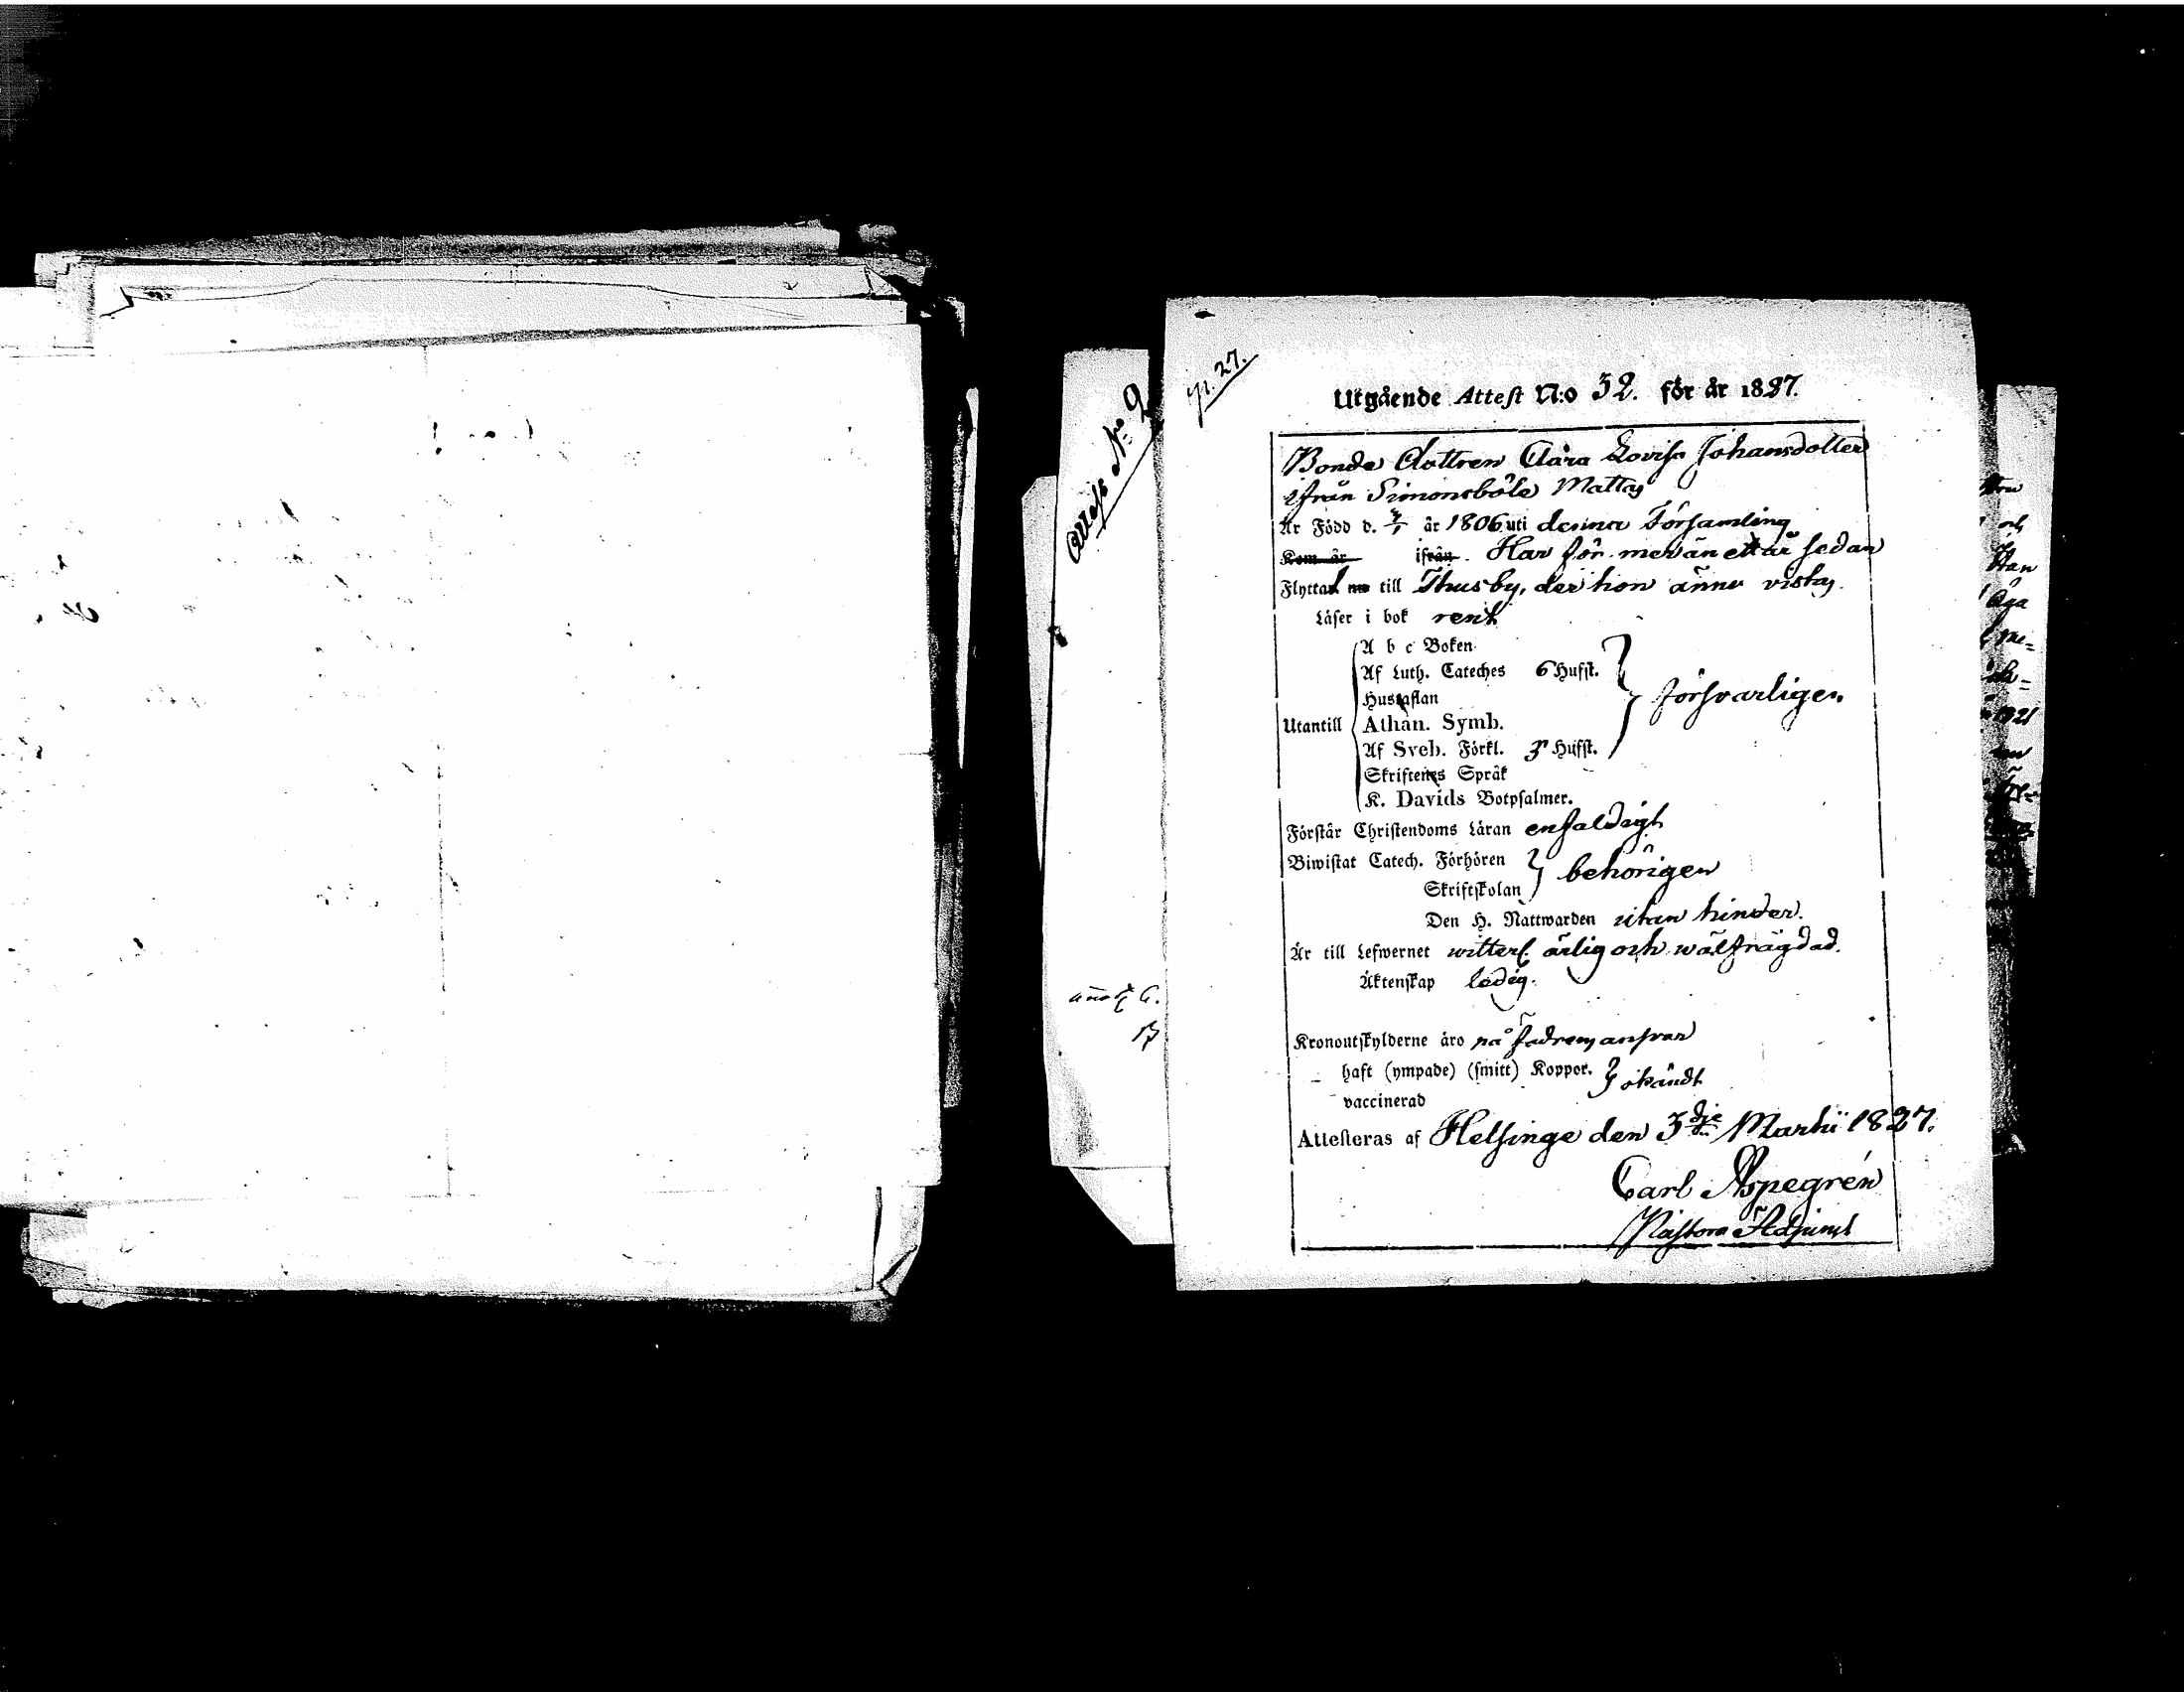 Attest No 2
p. 27.
Utgående Attest N:o 32. för år 1827.
Bonde dottren Clara Lovisa Johansdotter
ifrån Simonsböle Mattas
Är Född d. år 1806 uti denna Församling
Kom år ifrån. Har för mer än ett år sedan
Flyttat nu till Thusby, der hon ännu vistas.
Läser i bok rent
A b c Boken
Af Luth. Cateches 6 Hufst.
Hustaflan
Utantill Athan. Symb. försvarligen
Af Sveb. Förkl. 3 Hufst.
Skriftenes Språk
K. Davids Botpsalmer.
Förstår Christendoms Läran enfaldigt
Biwistat Catech. Förhören
Skriftskolan behörigen
Den H. Nattwarden utan hinder.
Är till Lefwernet witterl. ärlig och wälfrägdad.
Äktenskap ledig.
Kronoutskylderne äro på Fadrens ansvar
haft (ympade) (smitt) Koppor.
vaccinerad okändt
Attesteras af Helsinge den 3dje Martii 1827.
Carl Aspegrén
Pastors Adjunct